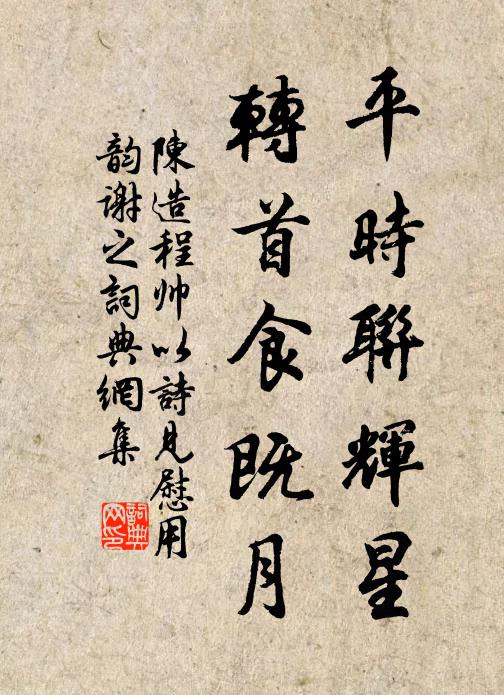 平時聯輝星
轉首食既月
陳造程帅以詩見慰用
韵謝之詞典網集
詞典
网印